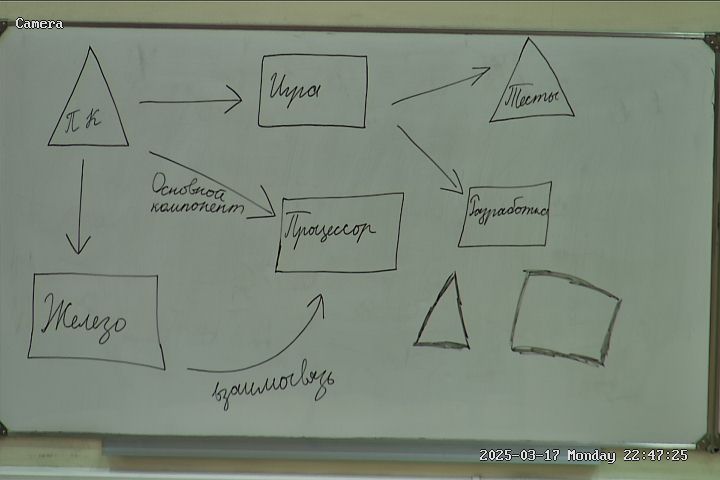 Camera
ПК
Игра
Тесты
Основной
компонент
Процессор
Разработка
Железо
взаимосвязь
2025-03-17 Monday 22:47:25